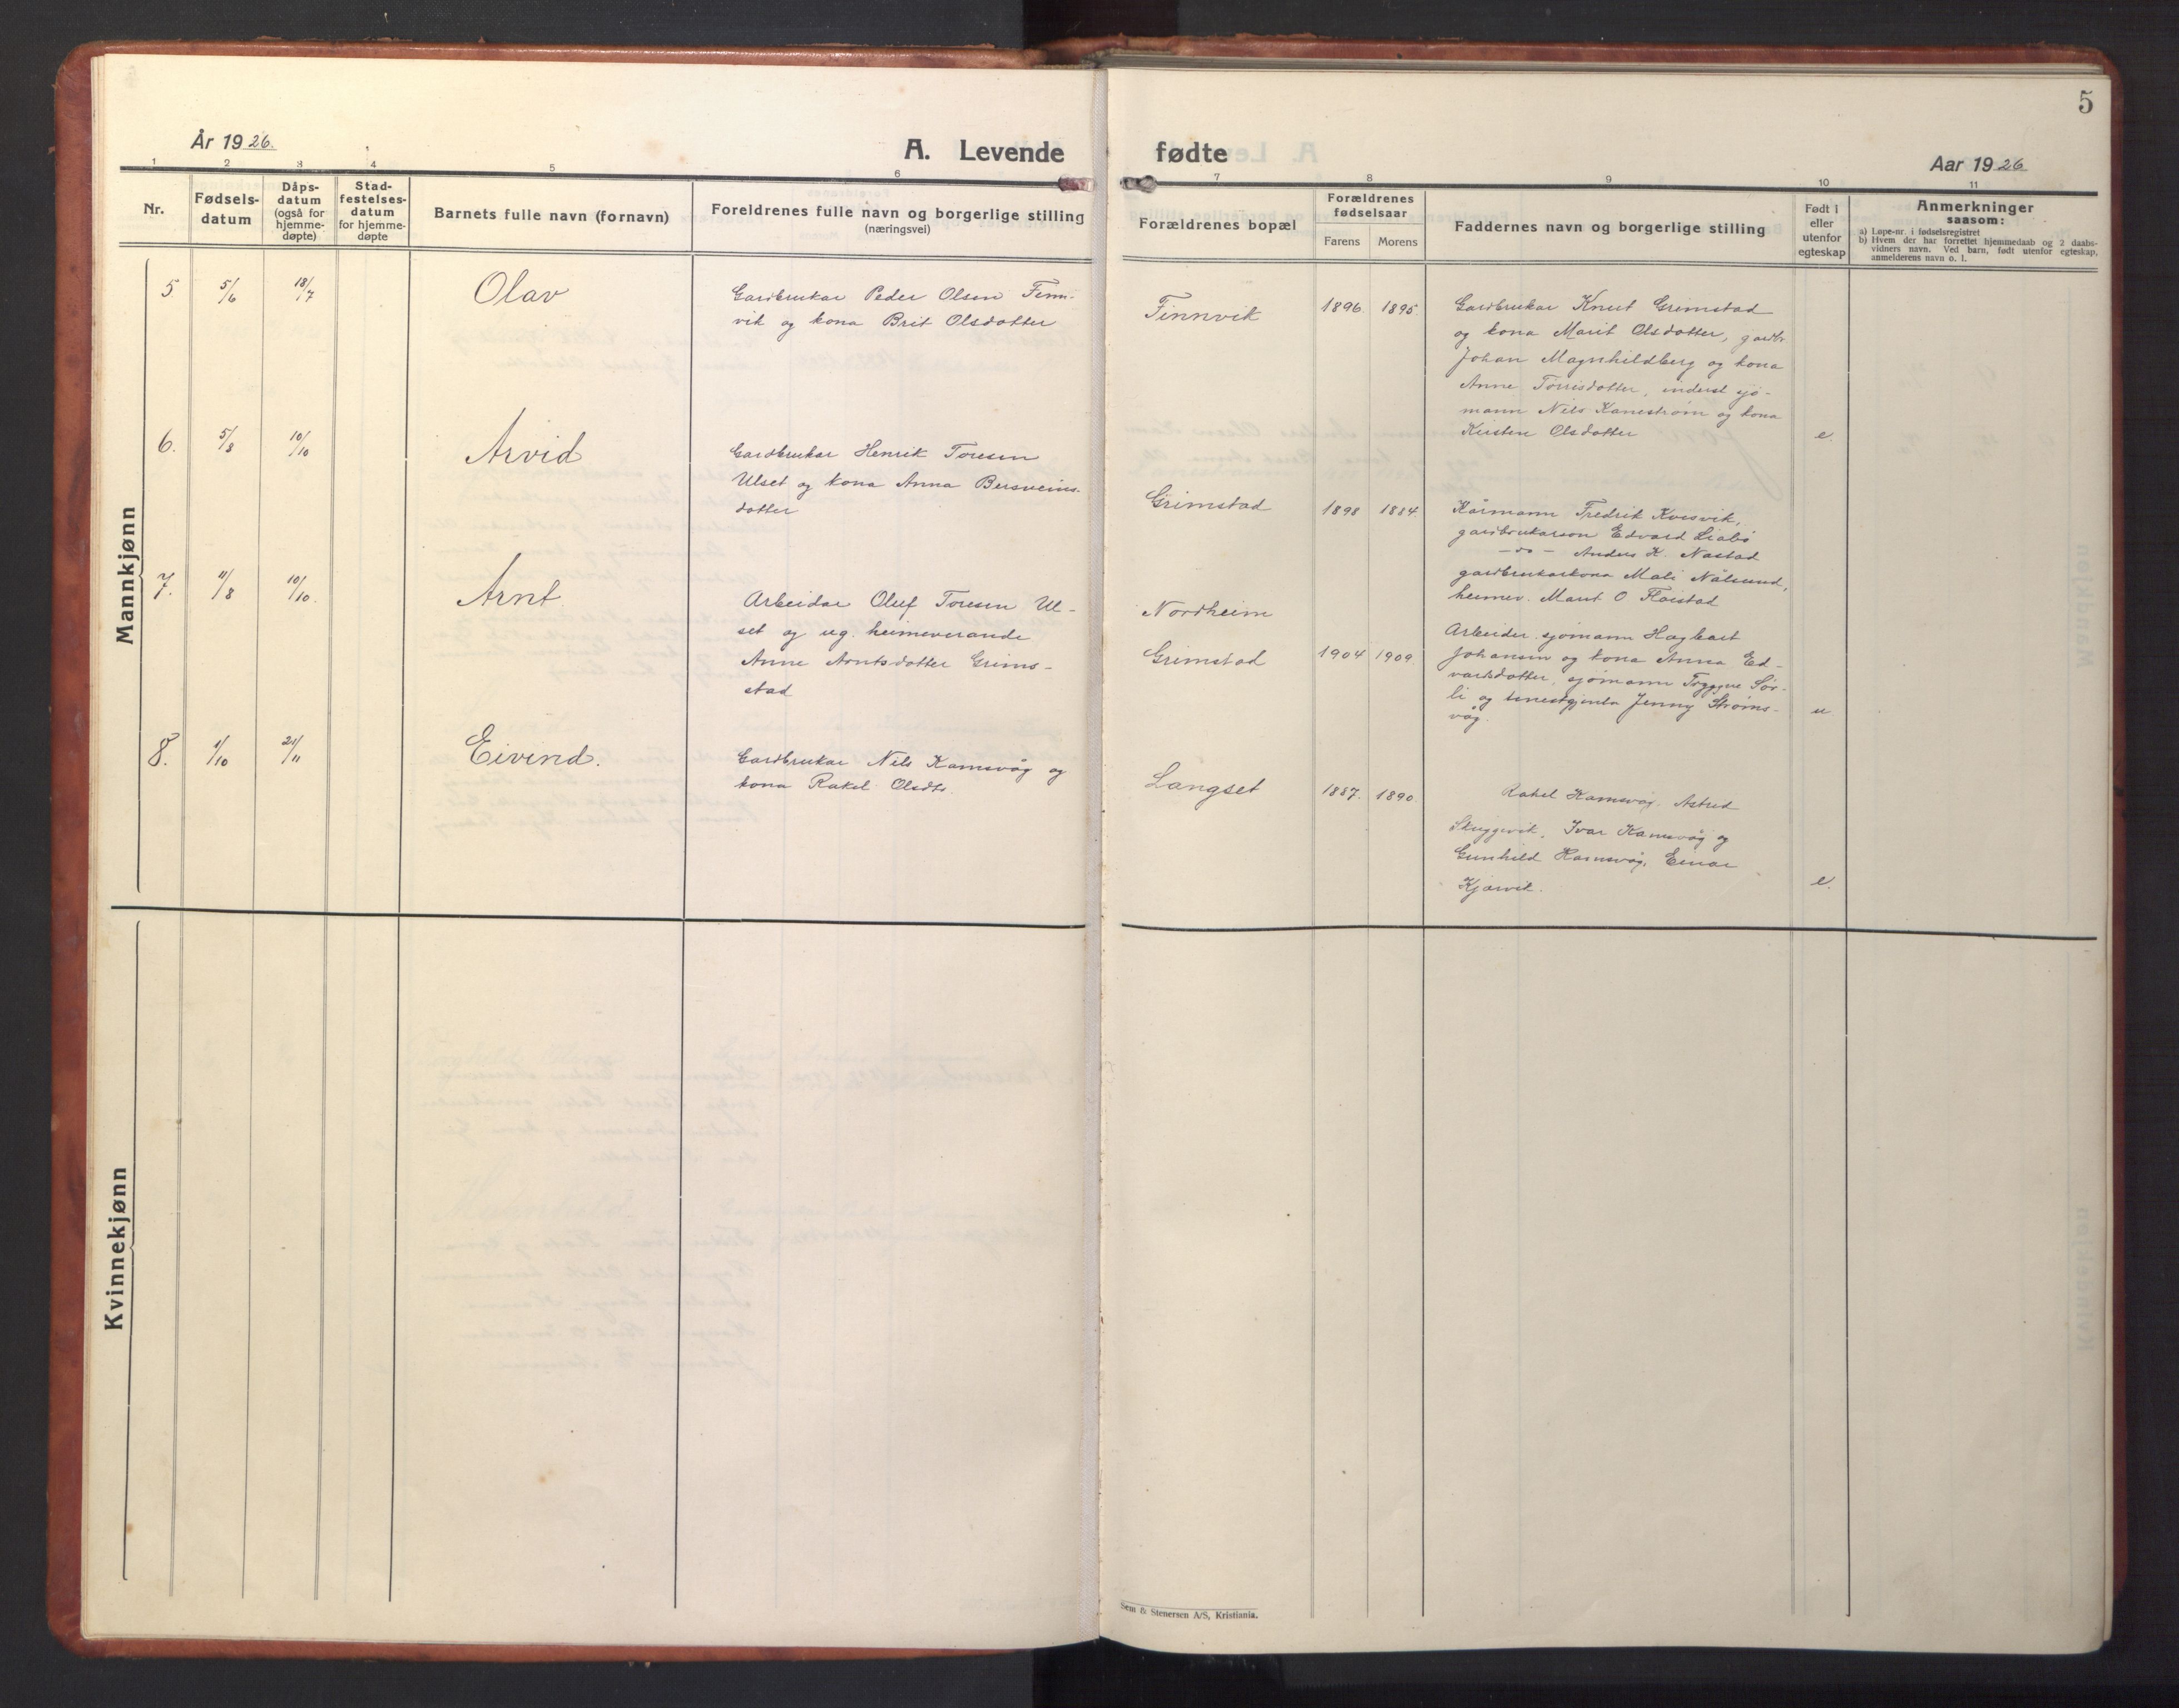 5
År 1926.
A. Levende
1 2 3 4 5 6
Nr.
Fødsels-
datum
Dåps-
datum
(også for
hjemme-
døpte)
Stad-
festelses-
datum
for hjemme-
døpte
Barnets fulle navn (fornavn)
Foreldrenes fulle navn og borgerlige stilling
(næringsvei)
Mannkjønn
5 5/6 18/7 Olav
Gardbrukar Peder Olsen Finn-
vik og kona Brit Olsdotter
6. 5/8 10/10 Arvid
Gardbrukar Henrik Toresen
Ulset og kona Anna Bersveins-
dotter
7. 11/8 10/10. Arnt
Arbeidar Oluf Toresen Ul-
set og ug. heimeverande
Anne Arntsdotter Grims-
stad
8. 1/10 21/11 Eivind.
Gardbrukar Nils Kamsvåg og
kona Rakel Olsdtr.
Kvinnekjønn
fødte
Aar 1926
7 8 9 10 11
Forældrenes bopæl
Forældrenes
fødselsaar
Farens Morens
Faddernes navn og borgerlige stilling
Født i
eller
utenfor
egteskap
Anmerkninger
saasom:
a) Løpe-nr. i fødselsregistret
b) Hvem der har forrettet hjemmedaab og 2 daabs-
vidners navn. Ved barn, født utenfor egteskap,
anmelderens navn o. l.
Finnvik 1896. 1895.
Gardbrukar Knut Grimstad
og kona Marit Olsdotter, gardbr.
Johan Magnhildberg og kona
Anne Tørrisdotter, inderst sjø-
mann Nils Kanestrøm og kona
Kirsten Olsdotter e.
Grimstad 1898 1884.
Kårmann Fredrik Kvisvik,
gardbrukarson Edvard Liabø
- do - Anders K. Nastad
gardbrukarkona Mali Nålsund,
heimev. Marit O
Nordheim
Grimstad 1904 1909.
Arbeider, sjømann Hagbart
Johansen og kona Anna Ed-
vardsdotter, sjømann Tryggve Sør-
li og tenestgjenta Jenny Strøms-
våg. u
Langset 1887. 1890.
Rakel Kamsvåg. Astrid
Skuggevik, Ivar Kamsvåg og
Gunhild Kamsvåg, Einar
Kjørvik. e.
Sem & Stenersen A/S, Kristiania.